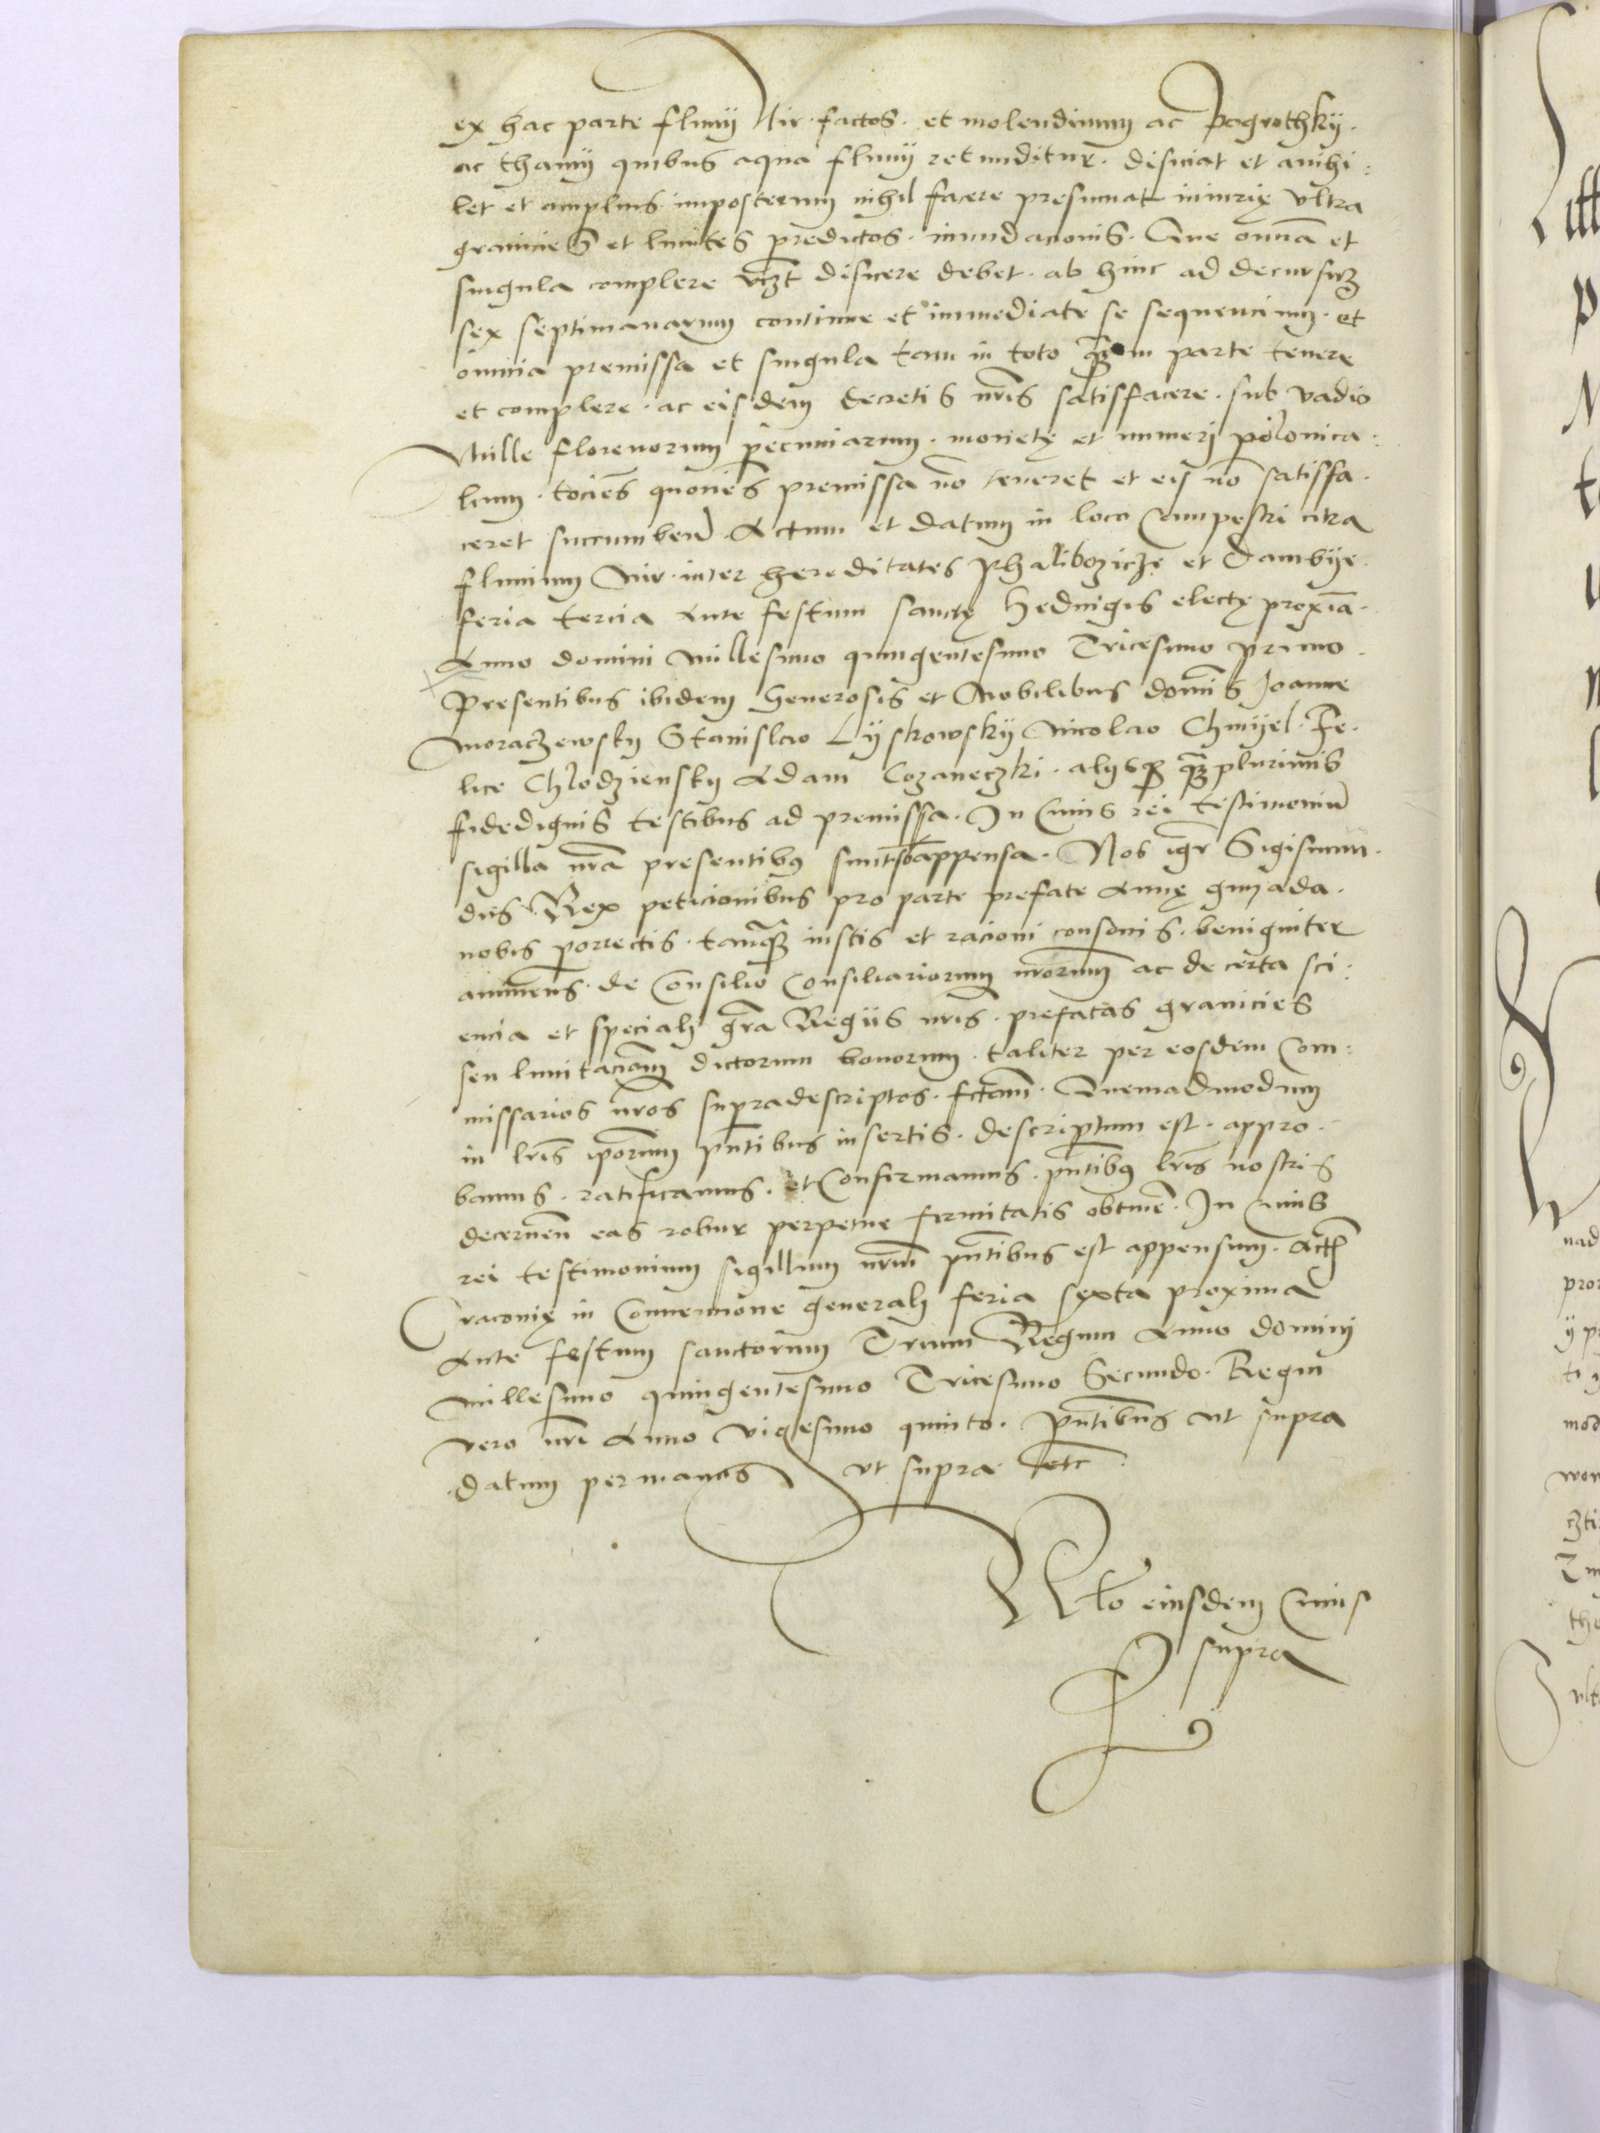 ex hac parte fluuij Nir · factos · et molendinum ac Pagrothky ·
ac thamy quibus aqua fluuij retunditur · disiiciat et anihi:
let et amplius imposterum nihil facere presumat iniurię vltra
granicies et limites predictos · inundacionis · Que omnia et
singula complere vczt disiicere debet · ab hinc ad decursum
sex septimanarum continue et immediate se sequencium · et
omnia premissa et singula tam in toto in parte tenere
et complere · ac eisdem decretis nrīs satisfacere · sub vadio
Mille florenorum pecuniarum · monetę et numerj polonica:
lium · tociens quociens premissa nō teneret et eis nō satisfa·
ceret succumbend · Actum et datum in loco Campestri citra
fluuium Nir · inter hereditates Phaliboziczę et Dambije ·
feria tercia Ante festum sanctę Heduigis electę proxīa ·
Anno domini millesimo quingentesimo Tricesimo primo ·
Presentibus ibidem Generosis et Nobilibus dominis Joanne
Moraczewsky Stanislao Lyskowsky Nicolao Chmijel · Fe·
lice Chlodziensky Adam Cozaneczki · alijsqȝ qȝ plurimis
fidedignis testibus ad premissa · In Cuius rei testimoniu
sigilla nrā presentibus sunt subappensa · Nos igr Sigismun·
dus Rex peticionibus pro parte prefate Annę
nobis porrectis · tamqȝ iustis et racioni consonis · benigniter
annuens · de Consilio Consiliariorum nrorum ac de certa sci:
encia et speciali gra Regijs nris · prefatas granicies
seu limitacionem dictorum bonorum · taliter per eosdem Com:
missarios nros supradescriptos · fctam · Quemadmodum
in lris iporum pntibus insertis · descriptum est · appro·
bamus · ratificamus · et Confirmamus · pntibus lris nostris
decernen eas robur perpetue firmitatis obtinere · In cuius
rei testimonium sigillum nrum pntibus est appensum · Actu
Cracouię in Conuencione generali feria sexta proxima
Ante festum sanctorum Trium Regum Anno dominj
millesimo quingentesimo Tricesimo Secundo · Regni
vero nri Anno vigesimo quinto · pntibus vt supra
datum per manus vt supra etc
Rlō eiusdem Cuius
supra